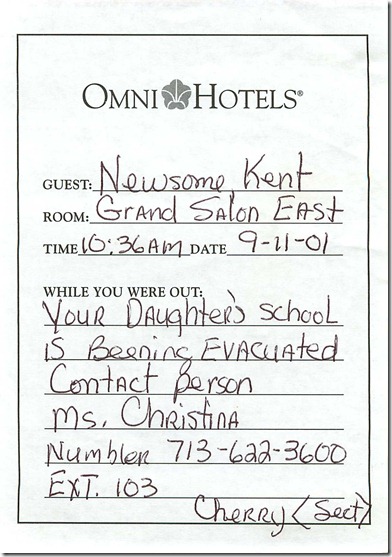 OMNI HOTELS®
GUEST: Newsome, Kent
ROOM: Grand Salon East
TIME 10:36AM DATE 9-11-01
WHILE YOU WERE OUT:
Your Daughter's school
is Beening Evacuated
Contact person
Ms. Christina
Numbler 713-622-3600
EXT. 103
Cherry (Sect)